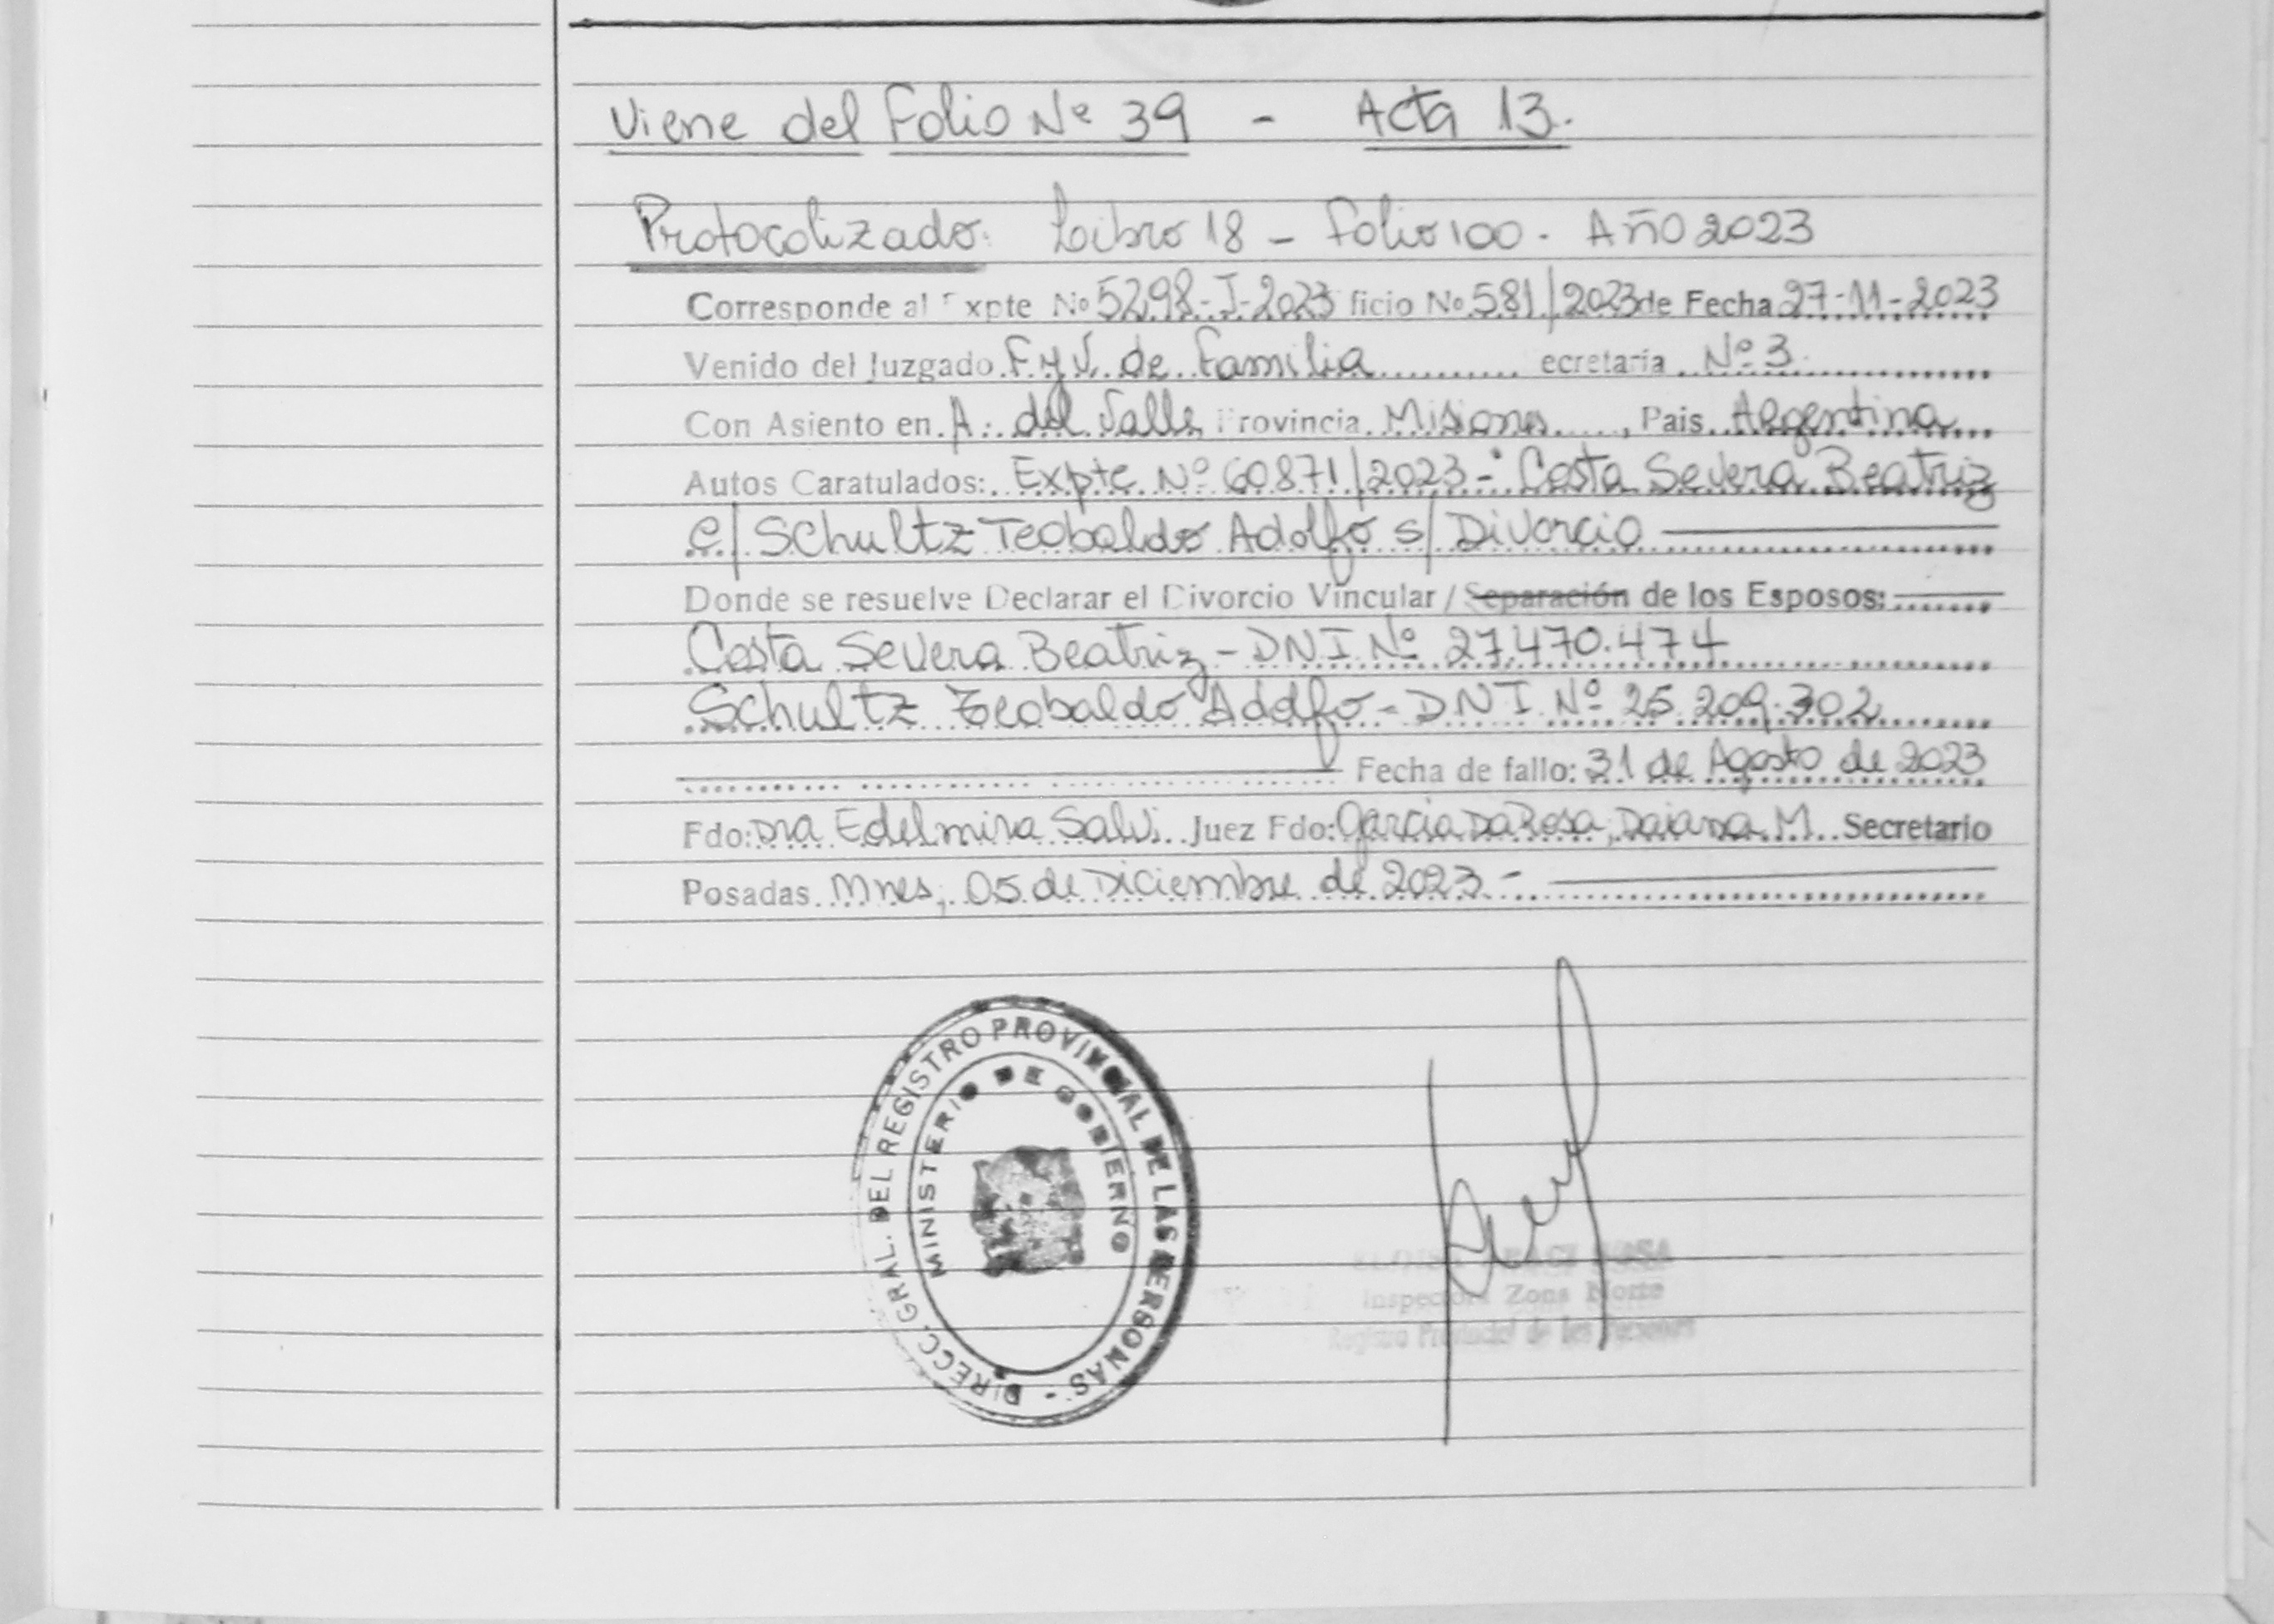 Viene del Folio Nº 39 - Acta 13.
Protocolizado: Libro 18 - Folio 100. Año 2023
Corresponde al Expte Nº 5298-J-2023 ficio Nº 581/2023 de Fecha 27-11-2023
Venido del Juzgado F. y V. de Familia ecretaria Nº 3
Con Asiento en A. del Valle Provincia Misiones, Pais Argentina
Autos Caratulados: Expte Nº 60871/2023 - Costa Severa Beatriz
c/ Schultz Teobaldo Adolfo s/ Divorcio
Donde se resuelve Declarar el Divorcio Vincular / Separación de los Esposos:
Costa Severa Beatriz - DNI Nº 27.470.474
Schultz Teobaldo Adolfo - DNI Nº 25.209.302
Fecha de fallo: 31 de Agosto de 2023
Fdo: Dra Edelmira Salvi Juez Fdo: Garcia Da Rosa, Daiana M. Secretario
Posadas Mnes, 05 de Diciembre de 2023 -
DIRECC. GRAL. DEL REGISTRO PROVINCIAL DE LAS PERSONAS -
MINISTERIO DE GOBIERNO
Inspectora Zona Norte
Registro Provincial de las Personas